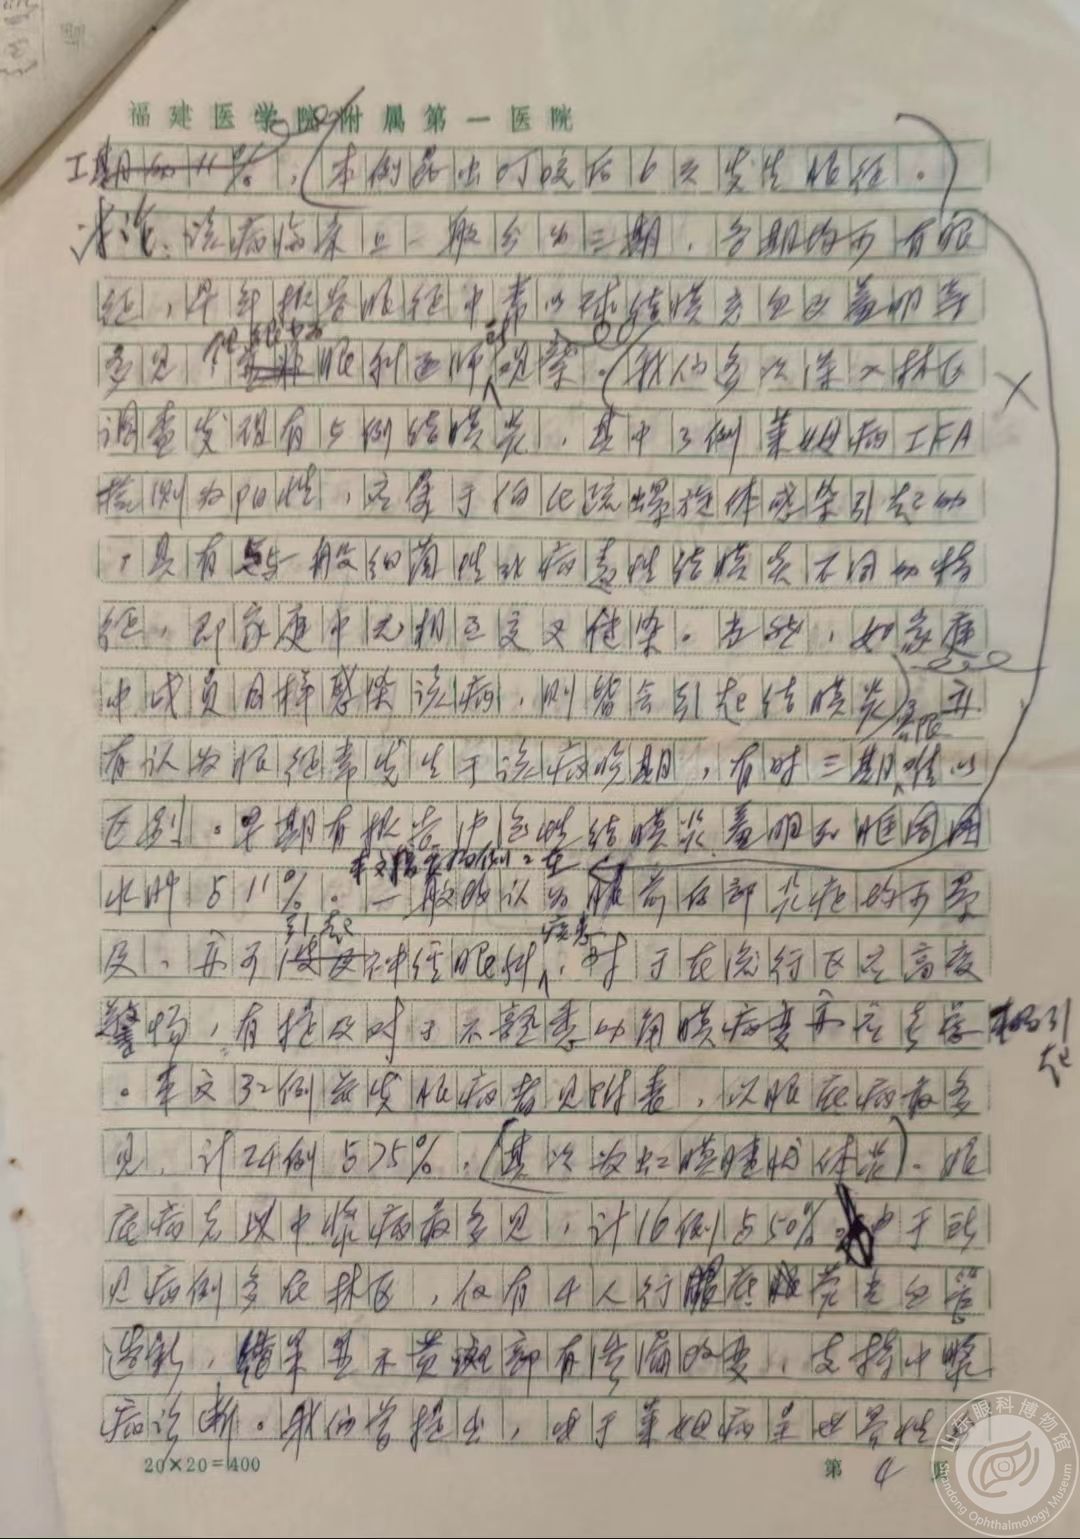 福建医学院附属第一医院
工期的11%，(本例为出叮咬后6天发生眼征。)
讨论、该病临床上一般分为三期，各期均可有眼
征，早年报告眼征中常以球结膜充血及羞明等
多见 眼科医师 观察。(我们多次深入林区
调查发现有5例结膜炎，其中3例莱姆病IFA
检测为阳性，应属于伯氏疏螺旋体感染引起的
，具有与一般细菌性或病毒性结膜炎不同的特
征，即家庭中无相互交叉传染。当然，如家庭
中成员同样感染该病，则皆会引起结膜炎)亦
有认为眼征常发生于该病晚期，有时三期难以
区别。早期有报告滤泡性结膜炎羞明和眶周围
水肿占11%。一般认为眼前后部炎症均可累
本文
引起 病变
及，亦可 神经眼科，对于在流行区应高度
警惕，有提及对于不熟悉的角膜病变亦应考虑
。本文32例并发眼病者见附表，以眼底病最多
见，计24例占75%，(其次为虹膜睫状体炎)。眼
底病尤以中浆病最多见，计16例占50%。由于所
见病例多在林区，仅有4人行眼底荧光血管
造影，结果显示黄斑部有渗漏改变，支持中浆
病诊断。我们曾提出，由于莱姆病呈世界性
20×20=400
第 4 页
山东眼科博物馆
Shandong Ophthalmology Museum